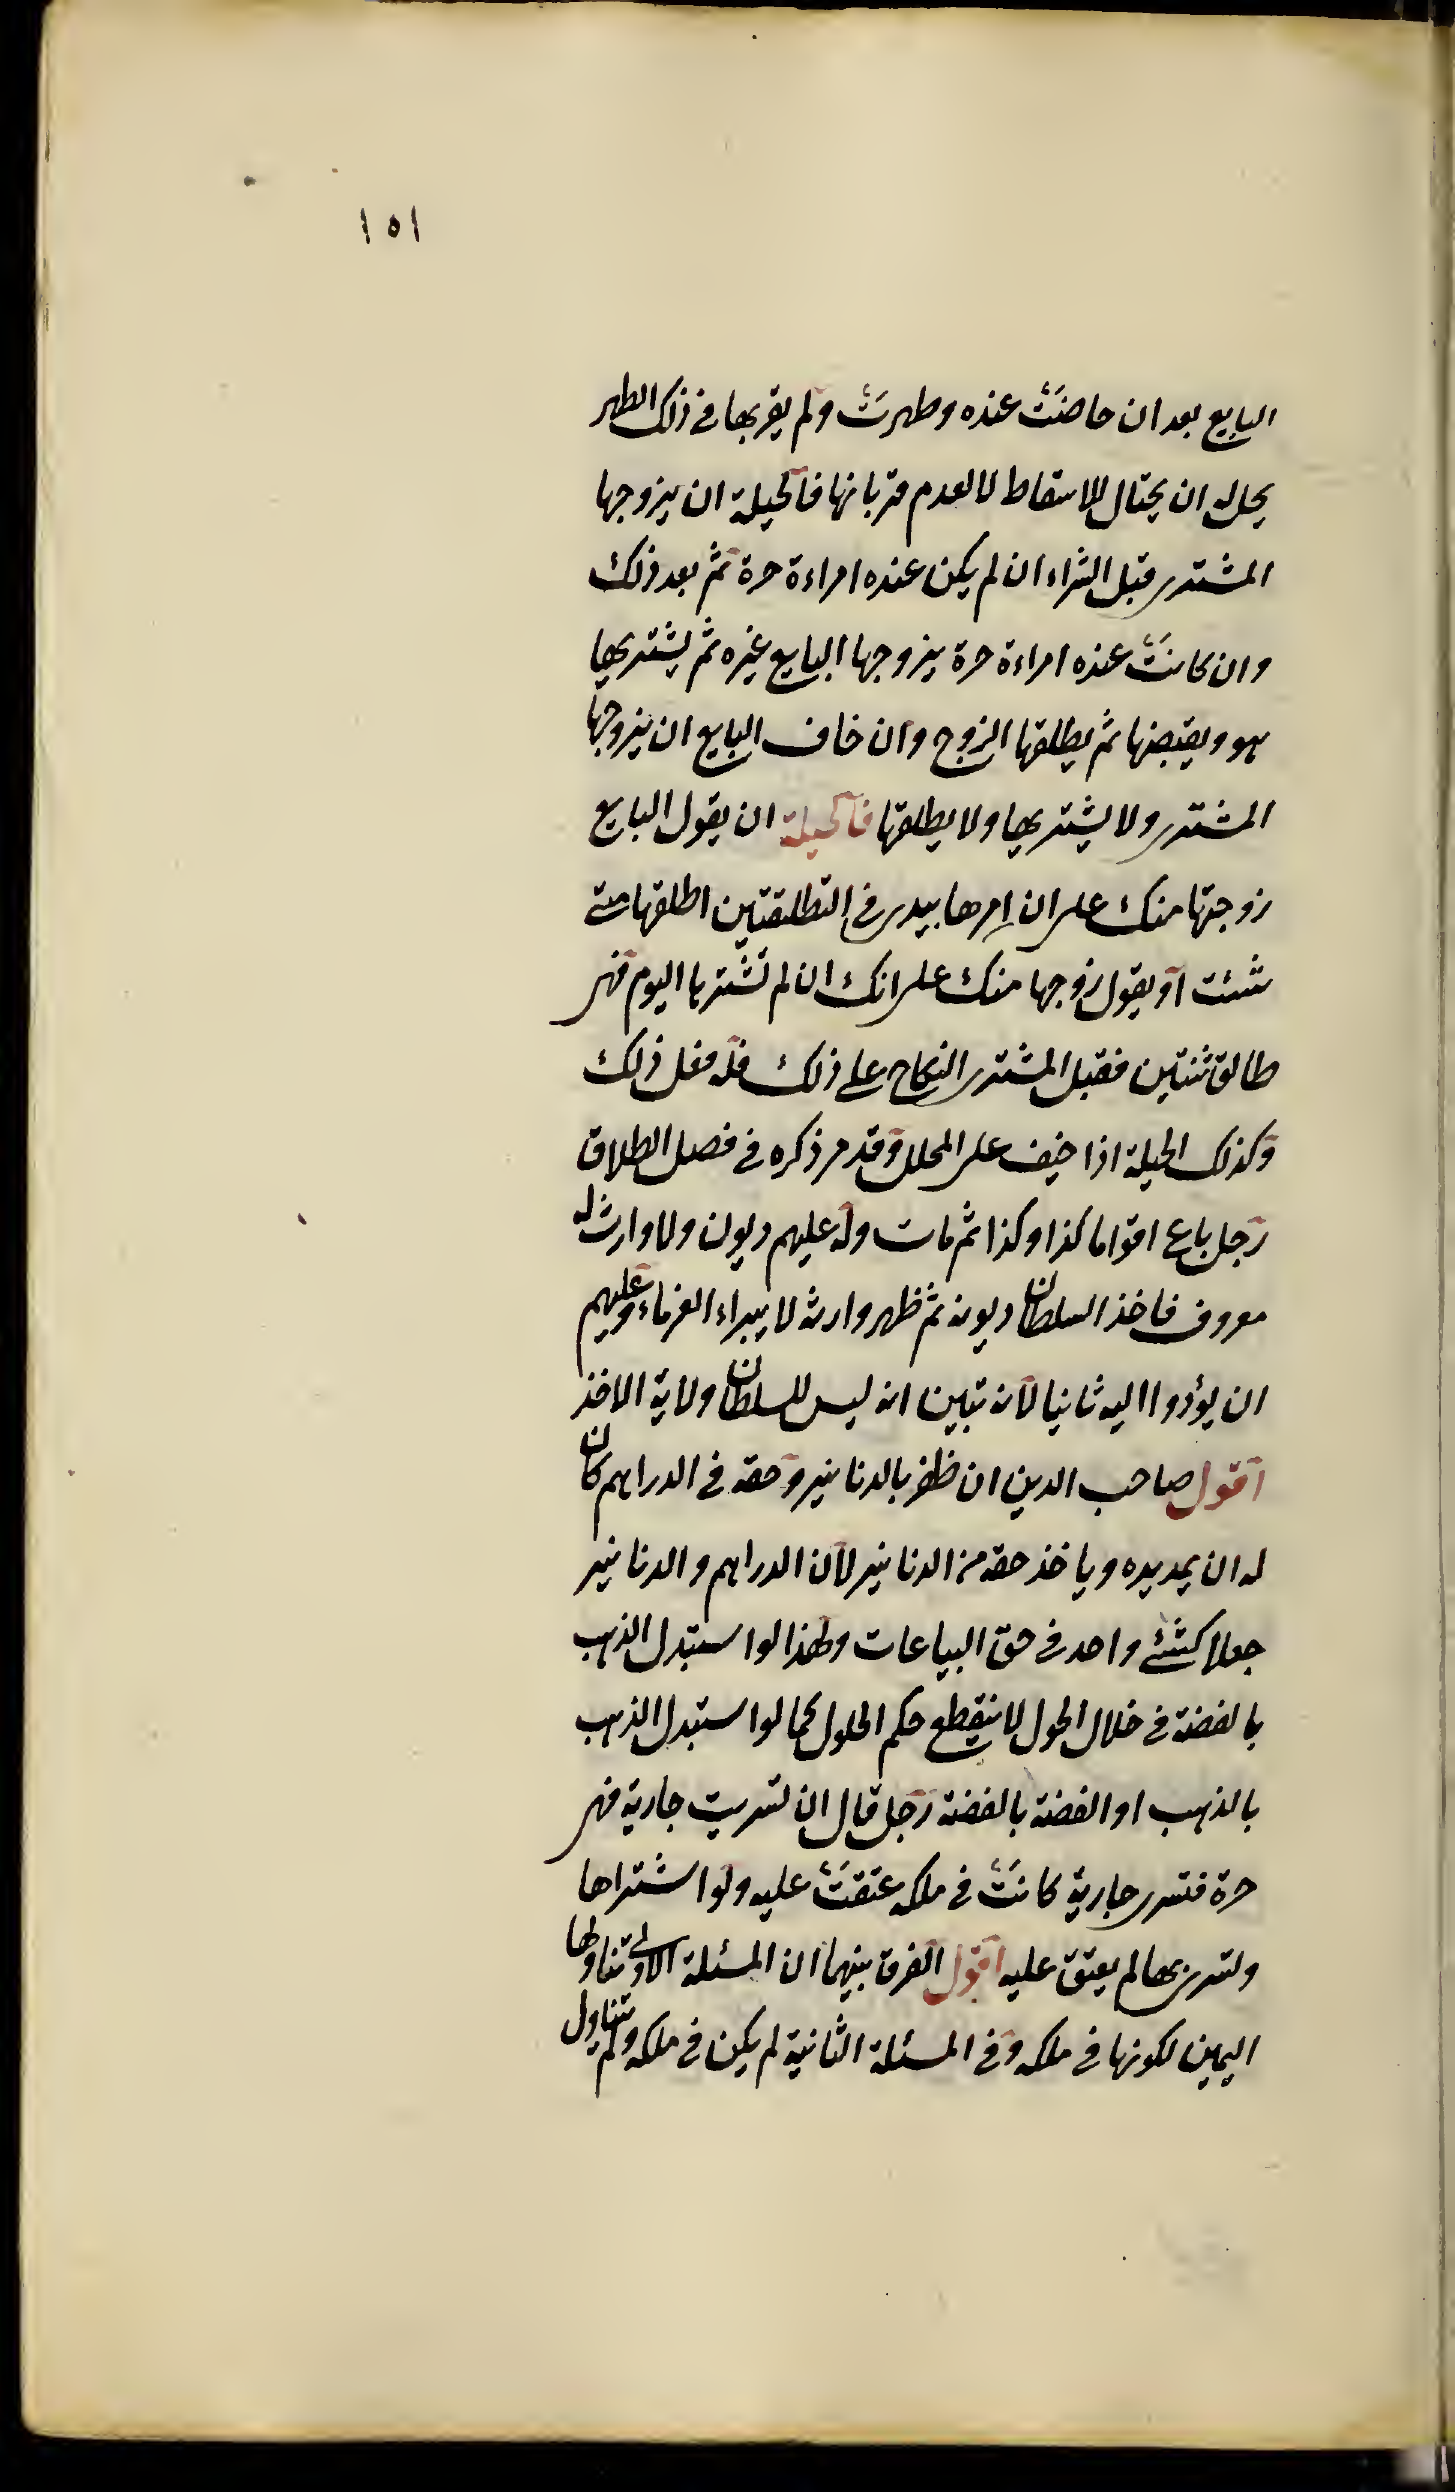 ١٥١
البايع بعد ان حاضَتْ عنده وطهرتْ ولم يقربها فى ذلك الطهر
يحل له ان يحتال للاسقاط لا لعدم قربانها فالحيلة ان يزوجها
المشترى قبل الشراء ان لم يكن عنده امراءة حرة ثم بعد ذلك
وان كانتْ عنده امراءة حرة يزوجها البايع غيره ثم يشتريها
هو ويقبضها ثم يطلقها الزوج وان خاف البايع ان يزوجها
المشترى ولا يشتريها ولا يطلقها فالحيلة ان يقول البايع
زوجتها منك على ان امرها بيدى فى التطليقتين اطلقها متى
شئت او يقول زوجها منك على انك ان لم تشترها اليوم فهى
طالق ثنتين فقبل المشترى النكاح على ذلك فله فعل ذلك
وكذلك الحيلة اذا خيف على المحلل وقد مر ذكره فى فصل الطلاق
رجل باع اقواما كذا وكذا ثم مات وله عليهم ديون ولا وارث له
معروف فاخذ السلطان ديونه ثم ظهر وارثه لا يبراء الغرماء وعليهم
ان يؤدوا اليه ثانيا لانه تبين انه ليس للسلطان ولاية الاخذ
اقول صاحب الدين ان ظفر بالدنانير وحقه فى الدراهم كان
له ان يمد يده وياخذ حقه من الدنانير لان الدراهم والدنانير
جعلا كشئ واحد فى حق البياعات ولهذا لو استبدل الذهب
بالفضة فى خلال الحول لا ينقطع حكم الحلول كما لو استبدل الذهب
بالذهب او الفضة بالفضة رجل قال ان تسريت جارية فهى
حرة فتسرى جارية كانَتْ فى ملكه عتقتْ عليه ولو اشتراها
وتسرى بها لم يعتق عليه اقول الفرق بينهما ان المسئلة الاولى تناولها
اليمين لكونها فى ملكه وفى المسئلة الثانية لم يكن فى ملكه ولم تتناول